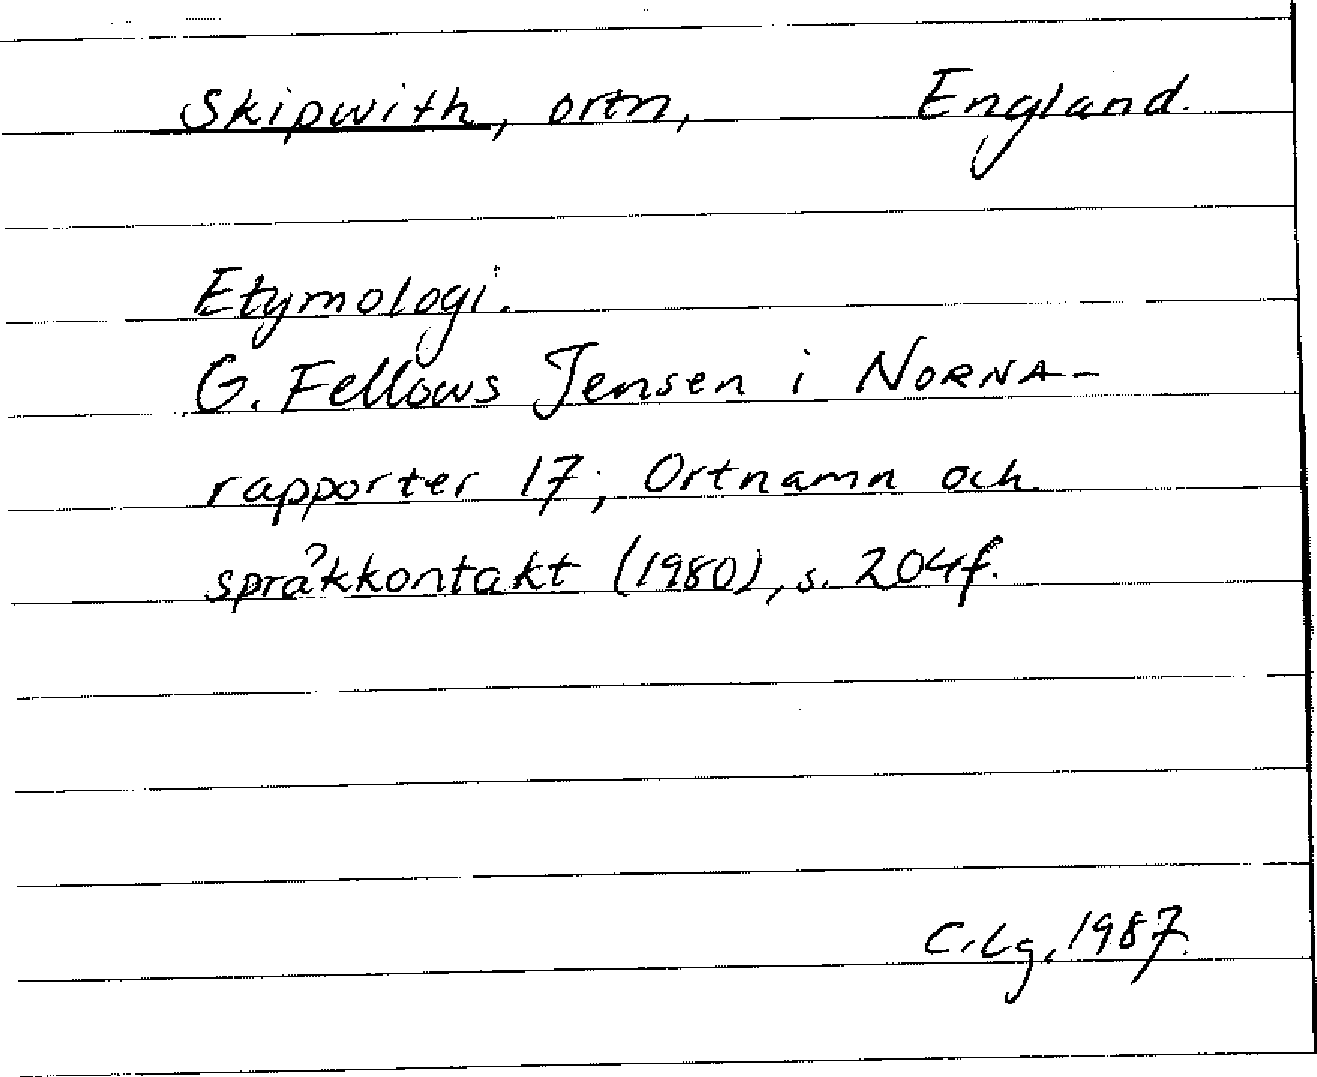 Skipwith, ortn, England.
Etymologi.
G. Fellows Jensen i NORNA-
rapporter 17; Ortnamn och
språkkontakt (1980), s. 204f.
C. Lg, 1987.